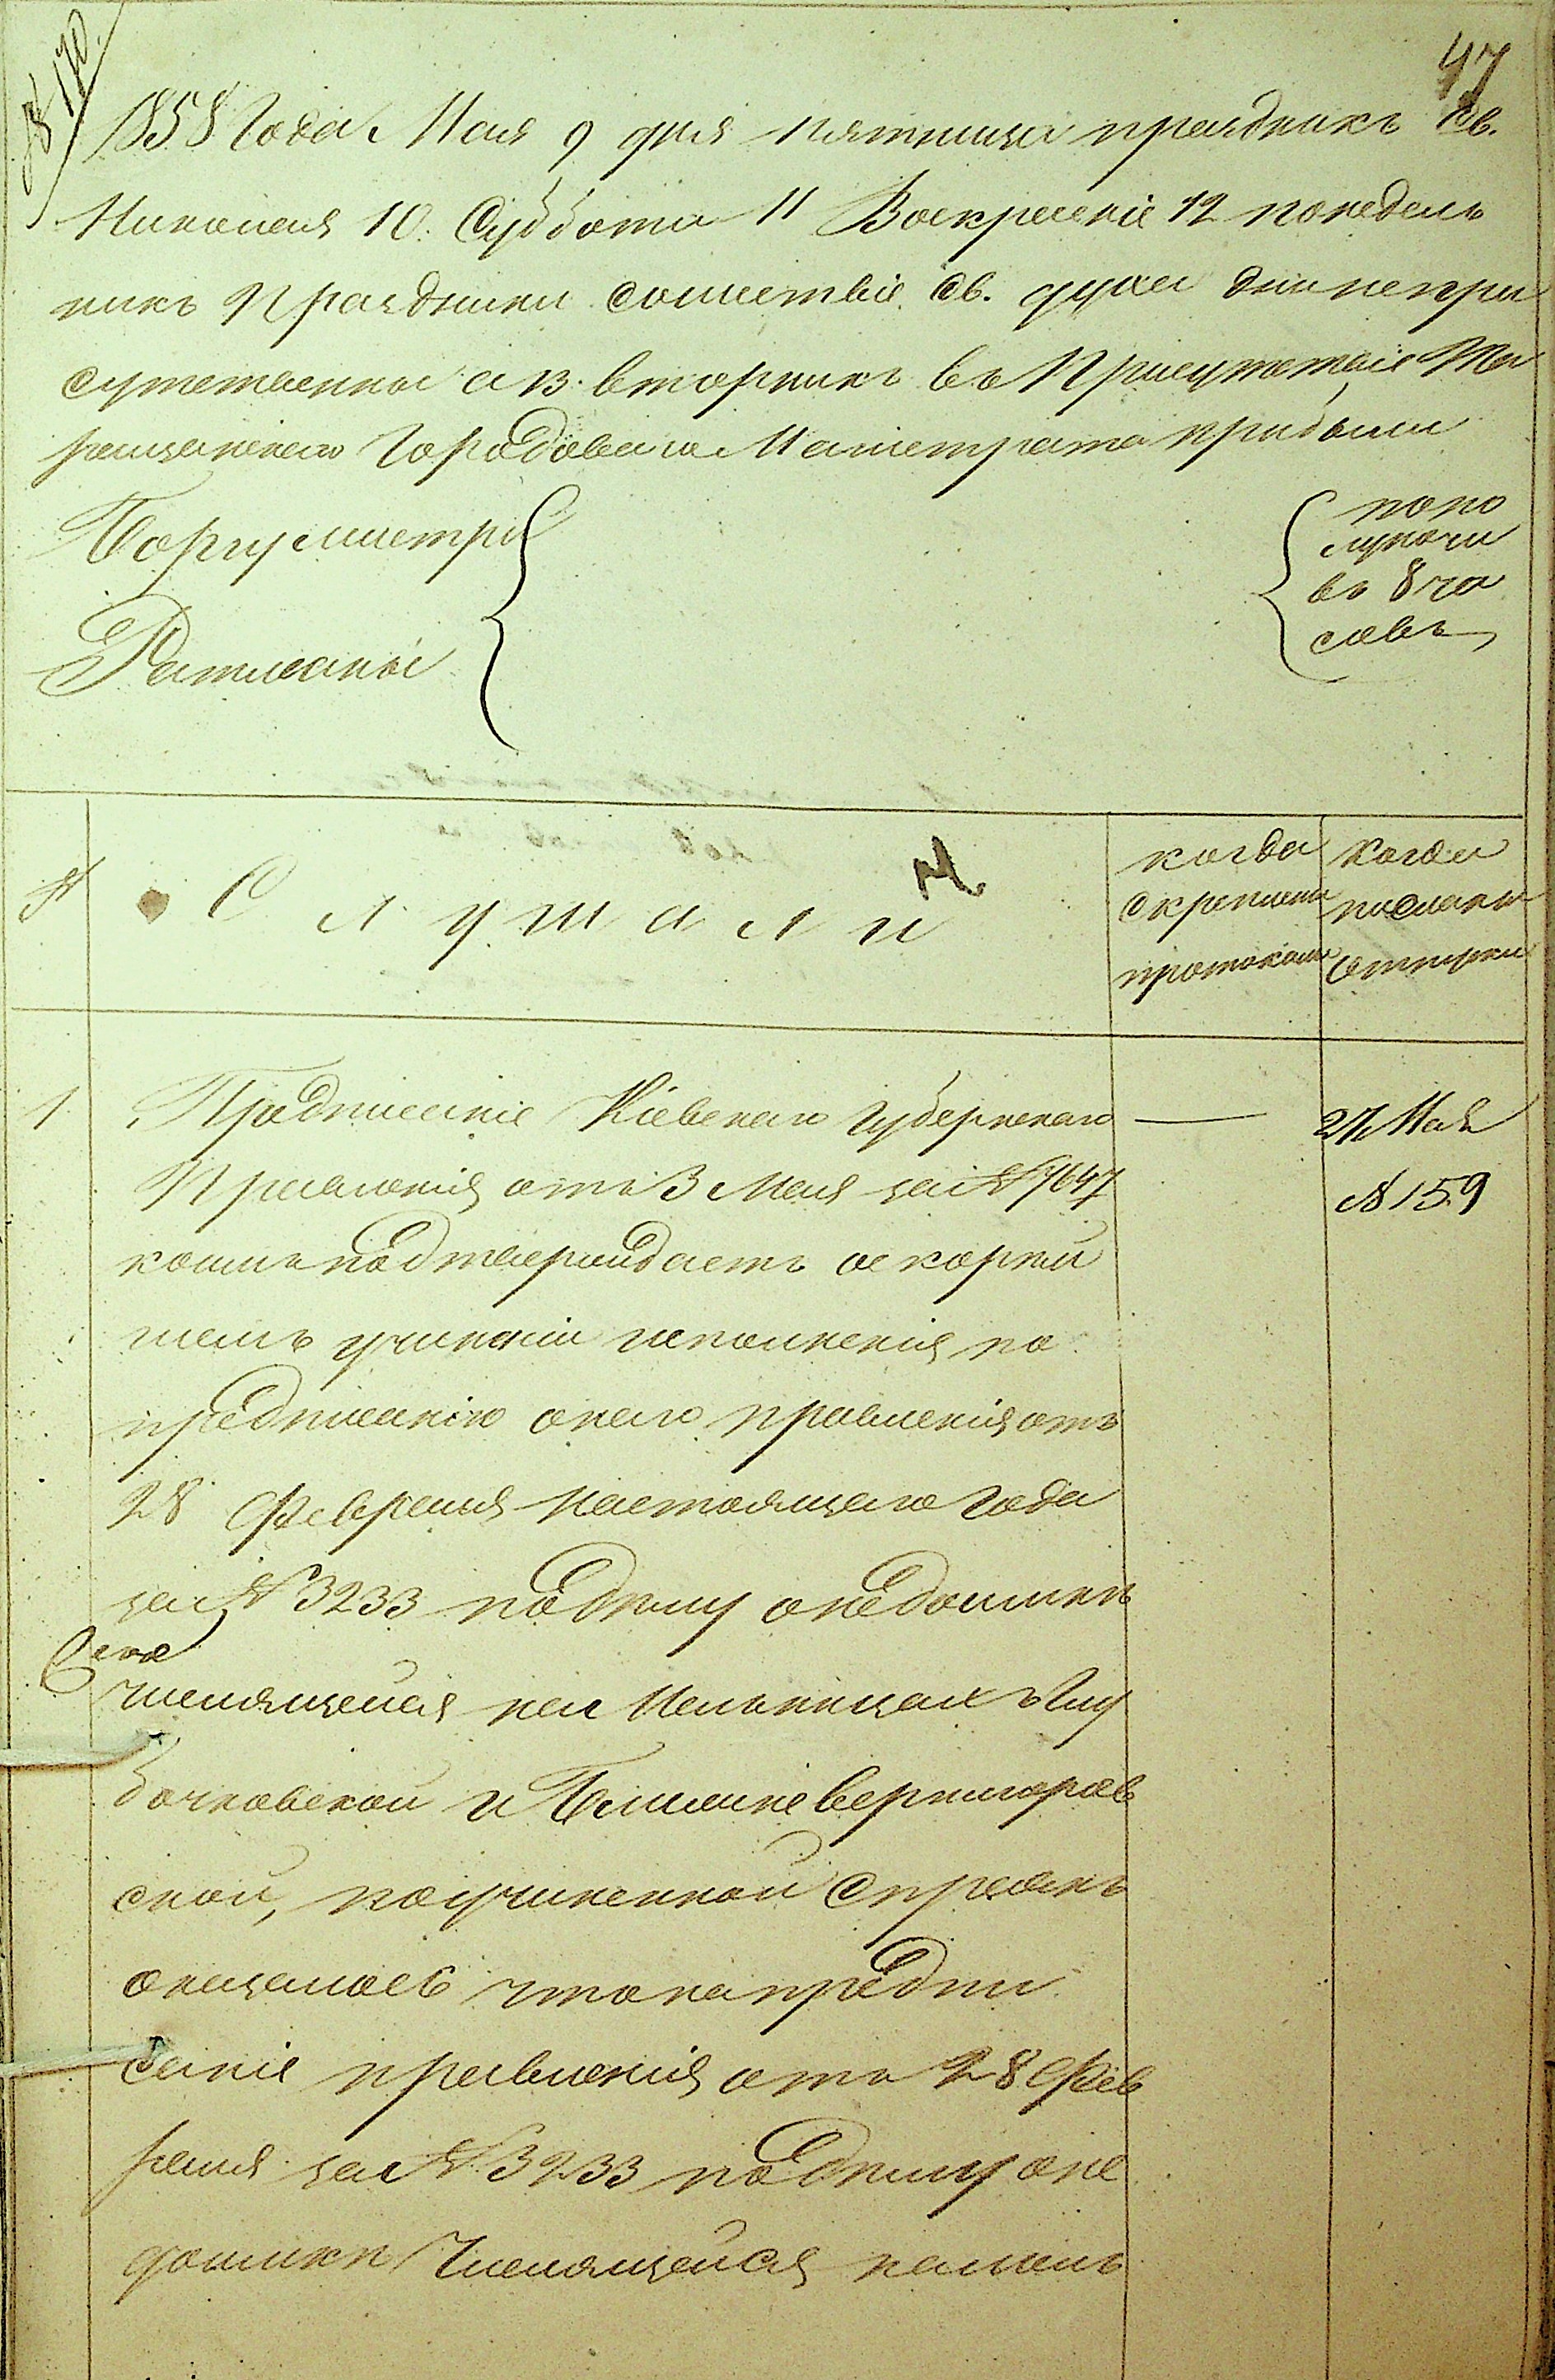 47
№ 170.
1858 Года Мая 9 дня пятница праздникъ Св.
Николая 10. Суббота 11 Воскресеніе 12 понедель
никъ Праздники сошествіе Св. духа дни непри
сутственные а 13. вторникъ въ Присутствіе Та
ращанскаго Городоваго Магистрата прибыли
Боргумистры
Ратманы
попо
луночи
въ 8 ча
совъ
№
Слушали
когда
скреплены
протоколы
Когда
посланы
отпуски
1
Предписаніе Кіевскаго Губернскаго
Правленія отъ 3 Мая за № 7647
коимъ подтверждаетъ о скорѣй
шемъ учиненіи исполненія по
предписанію онаго правленія отъ
28 Февраля настоящаго года
за № 3233 подушу о недоимкѣ
числящейся на Мельницахъ Лу
бочковской и Баши Вернигоров
ской, по учиненной справкѣ
оказалось что на предпи
саніе правленія отъ 28 Фев
раля за № 3233 о не
доимкѣ числящейся на мель
27 Мая
№ 159